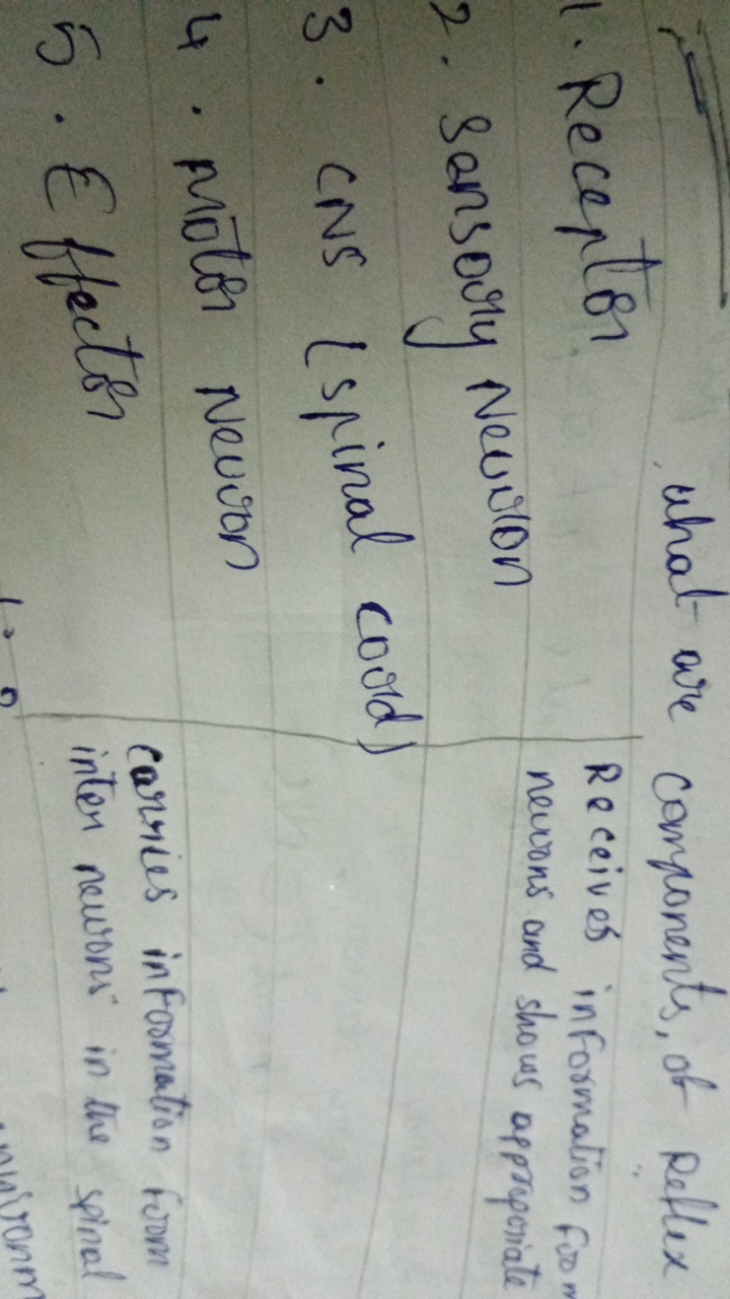 what are components, of Reflex
1. Receptor
Receives information from
neurons and shows appropriate
2. Sensory Neuron
3. CNS (spinal cord)
4. Motor Neuron
carries information from
5. Effector
inter neurons in the spinal